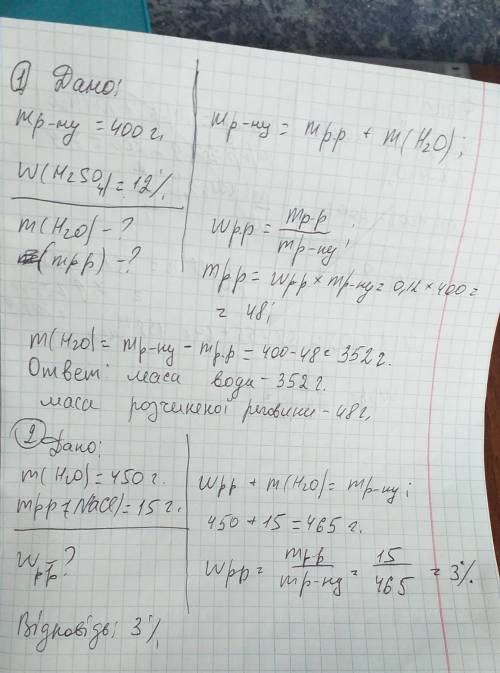 ① Дано:
mр-ну = 400 г.
W(H₂SO₄) = 12%.
m(H₂O) - ?
(mрр) - ?
mр-ну = mрр + m(H₂O);
Wрр = mр-р / mр-ну;
mрр = Wрр × mр-ну = 0,12 × 400 =
= 48;
m(H₂O) = mр-ну - mр.р = 400 - 48 = 352 г.
Ответ: маса води - 352 г.
маса розчиненої речовини - 48 г.
② Дано:
m(H₂O) = 450 г.
mрр (NaCl) = 15 г.
Wрр - ?
Wрр + m(H₂O) = mр-ну;
450 + 15 = 465 г.
Wрр = mр-р / mр-ну = 15 / 465 = 3%.
Відповідь: 3%